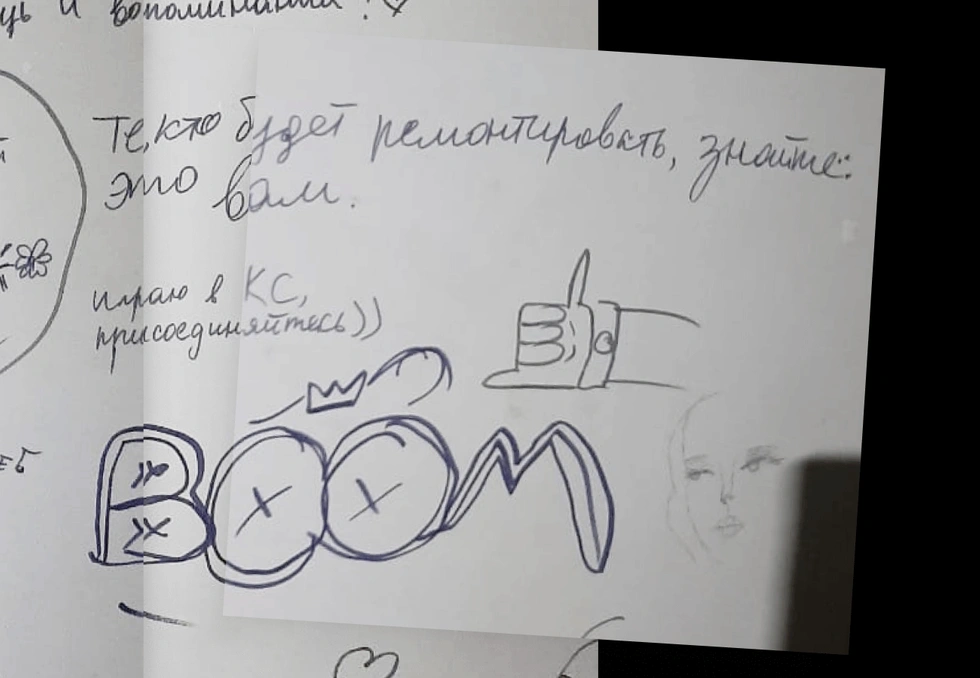 и вопоминания!
Те,кто будет ремонтировать, знайте:
это вам.
играю в КС,
присоединяйтесь))
BOOM